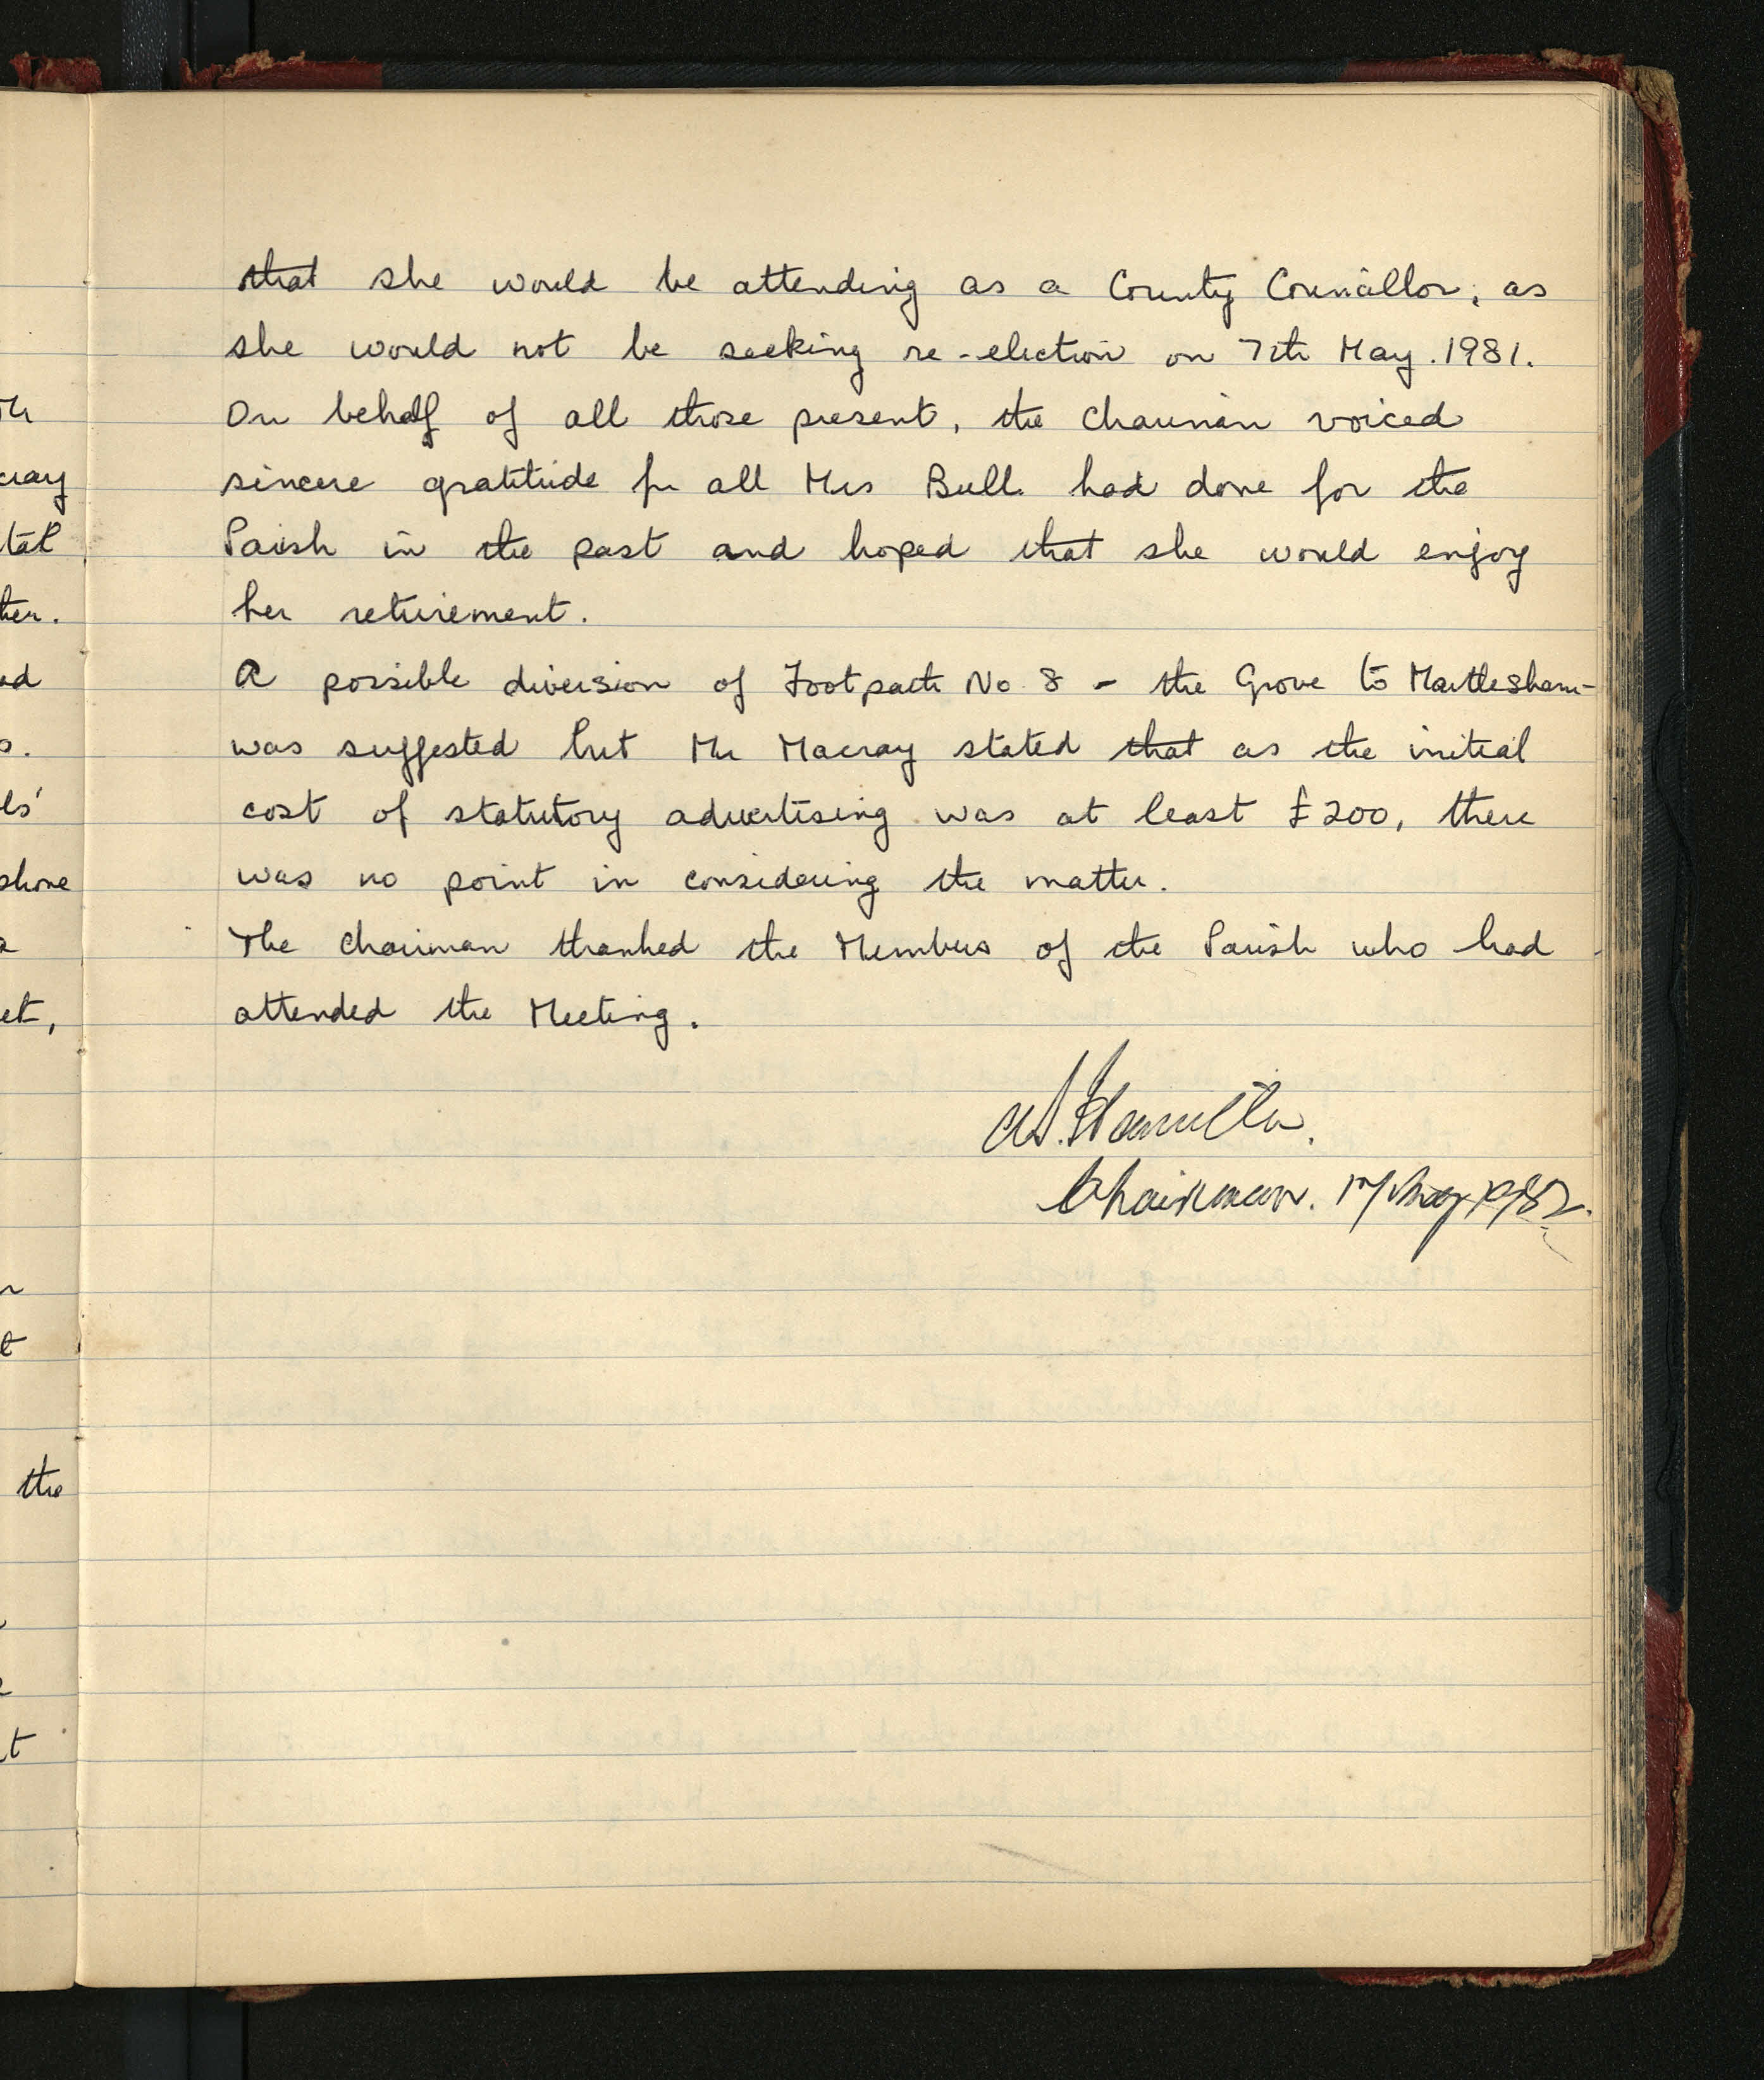 that she would be attending as a County Councillor, as
she would not be seeking re-election on 7th May. 1981.
On behalf of all those present, the Chairman voiced
sincere gratitude for all Mrs Bull had done for the
Parish in the past and hoped that she would enjoy
her retirement.
A possible diversion of Footpath No 8 - the Grove to Martlesham-
was suggested but Mr Macray stated that as the initial
cost of statutory advertising was at least £200, there
was no point in considering the matter.
The Chairman thanked the Members of the Parish who had
attended the Meeting.
Hamilton.
Chairman. 17 May 1982.
cray
ter.
shone
et,
the